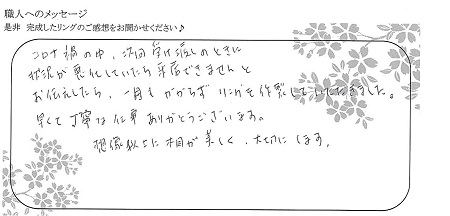 職人へのメッセージ
是非 完成したリングのご感想をお聞かせください♪
コロナ禍の中、次回受け渡しのときに
状況が悪化していたら来店できませんと
お伝えしたら、一月もかからずリングを作製していただきました。
早くて丁寧な仕事ありがとうございます。
想像以上に木目が美しく、大切にします。